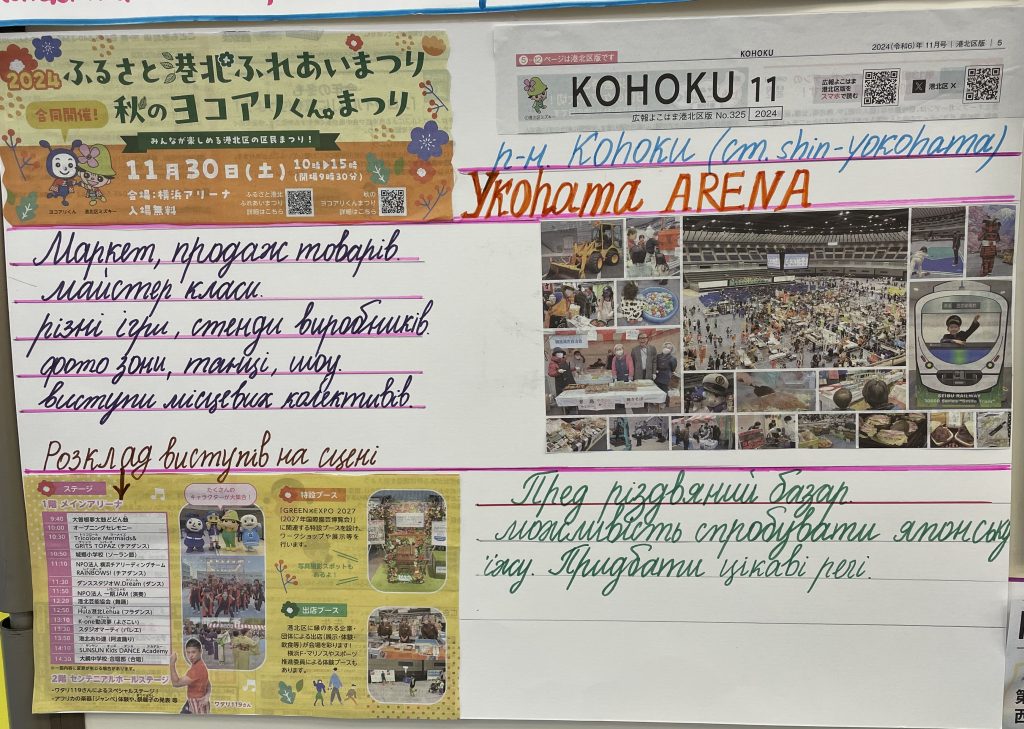 2024 ふるさと港北ふれあいまつり
合同開催!
秋のヨコアリくんまつり
みんなが楽しめる港北区の区民まつり!
11月30日(土) 10時▶15時
(開場9時30分)
会場:横浜アリーナ
入場無料
ふるさと港北
ふれあいまつり
詳細はこちら
秋の
ヨコアリくんまつり
詳細はこちら
ヨコアリくん
港北区ミズキー
KOHOKU
2024(令和6)年 11月号 | 港北区版 | 5
5 - 12 ページは港北区版です
KOHOKU 11
2024
広報よこはま港北区版 No.325
広報よこはま
港北区版を
スマホで読む
港北区 X
©港北区ミズキー
р-н. Kohoku (ст. shin-yokohama)
Yкohama ARENA
Маркет, продаж товарів.
майстер класи.
різні ігри, стенди виробників.
фото зони, танці, шоу.
виступи місцевих колективів.
SEIBU RAILWAY
Розклад виступів на сцені
ステージ
1階 メインアリーナ
9:40 大曽根夢太鼓どどん鼓
10:00 オープニングセレモニー
10:30 Tricolore Mermaids&
GRITS TOPAZ (チアダンス)
10:50 城郷小学校 (ソーラン節)
11:10 NPO法人 横浜チアリーディングチーム
RAINBOWS! (チアダンス)
11:30 ダンススタジオW.Dream (ダンス)
11:50 NPO法人 一期JAM (演奏)
12:20 港北芸能協会 (舞踊)
12:50 Hula港北Lehua (フラダンス)
13:10 K-one動流夢 (よさこい)
13:30 スタジオマーティ (バレエ)
13:50 港北あわ連 (阿波踊り)
14:10 SUNSUN KIDS DANCE Academy
14:30 大綱中学校 合唱部 (合唱)
2階 センテニアルホールステージ
・ワタリ119さんによるスペシャルステージ!
・アフリカの楽器「ジャンベ」体験や、囃子の発表 等
たくさんの
キャラクターが大集合!
ワタリ119さん
特設ブース
「GREEN×EXPO 2027
(2027年国際園芸博覧会)」
に関連する特設ブースを設け、
ワークショップや展示等を
行います。
写真撮影スポットも
あるよ!
出店ブース
港北区に縁のある企業・
団体による出店(展示・体験・
飲食等)が会場を彩ります!
横浜F・マリノスやスポーツ
推進委員による体験ブースも
あります。
Пред різдвяний базар.
можливість спробувати японську
їжу. Придбати цікаві речі.